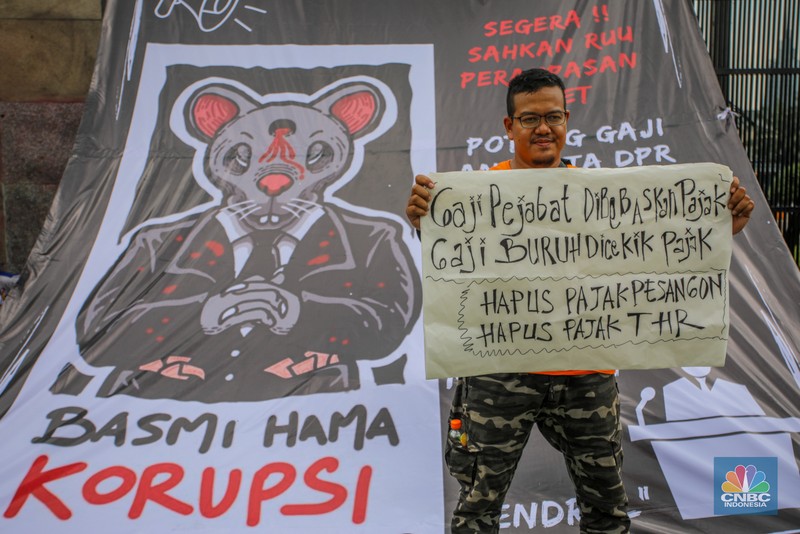 SEGERA !!
SAHKAN RUU
GAJI
DPR
Gaji Pejabat DiBeBASkan Pajak
Gaji BURUH Dicekik Pajak
HAPUS PAJAK PESANGON
HAPUS PAJAK THR
BASMI HAMA
KORUPSI
CNBC
INDONESIA